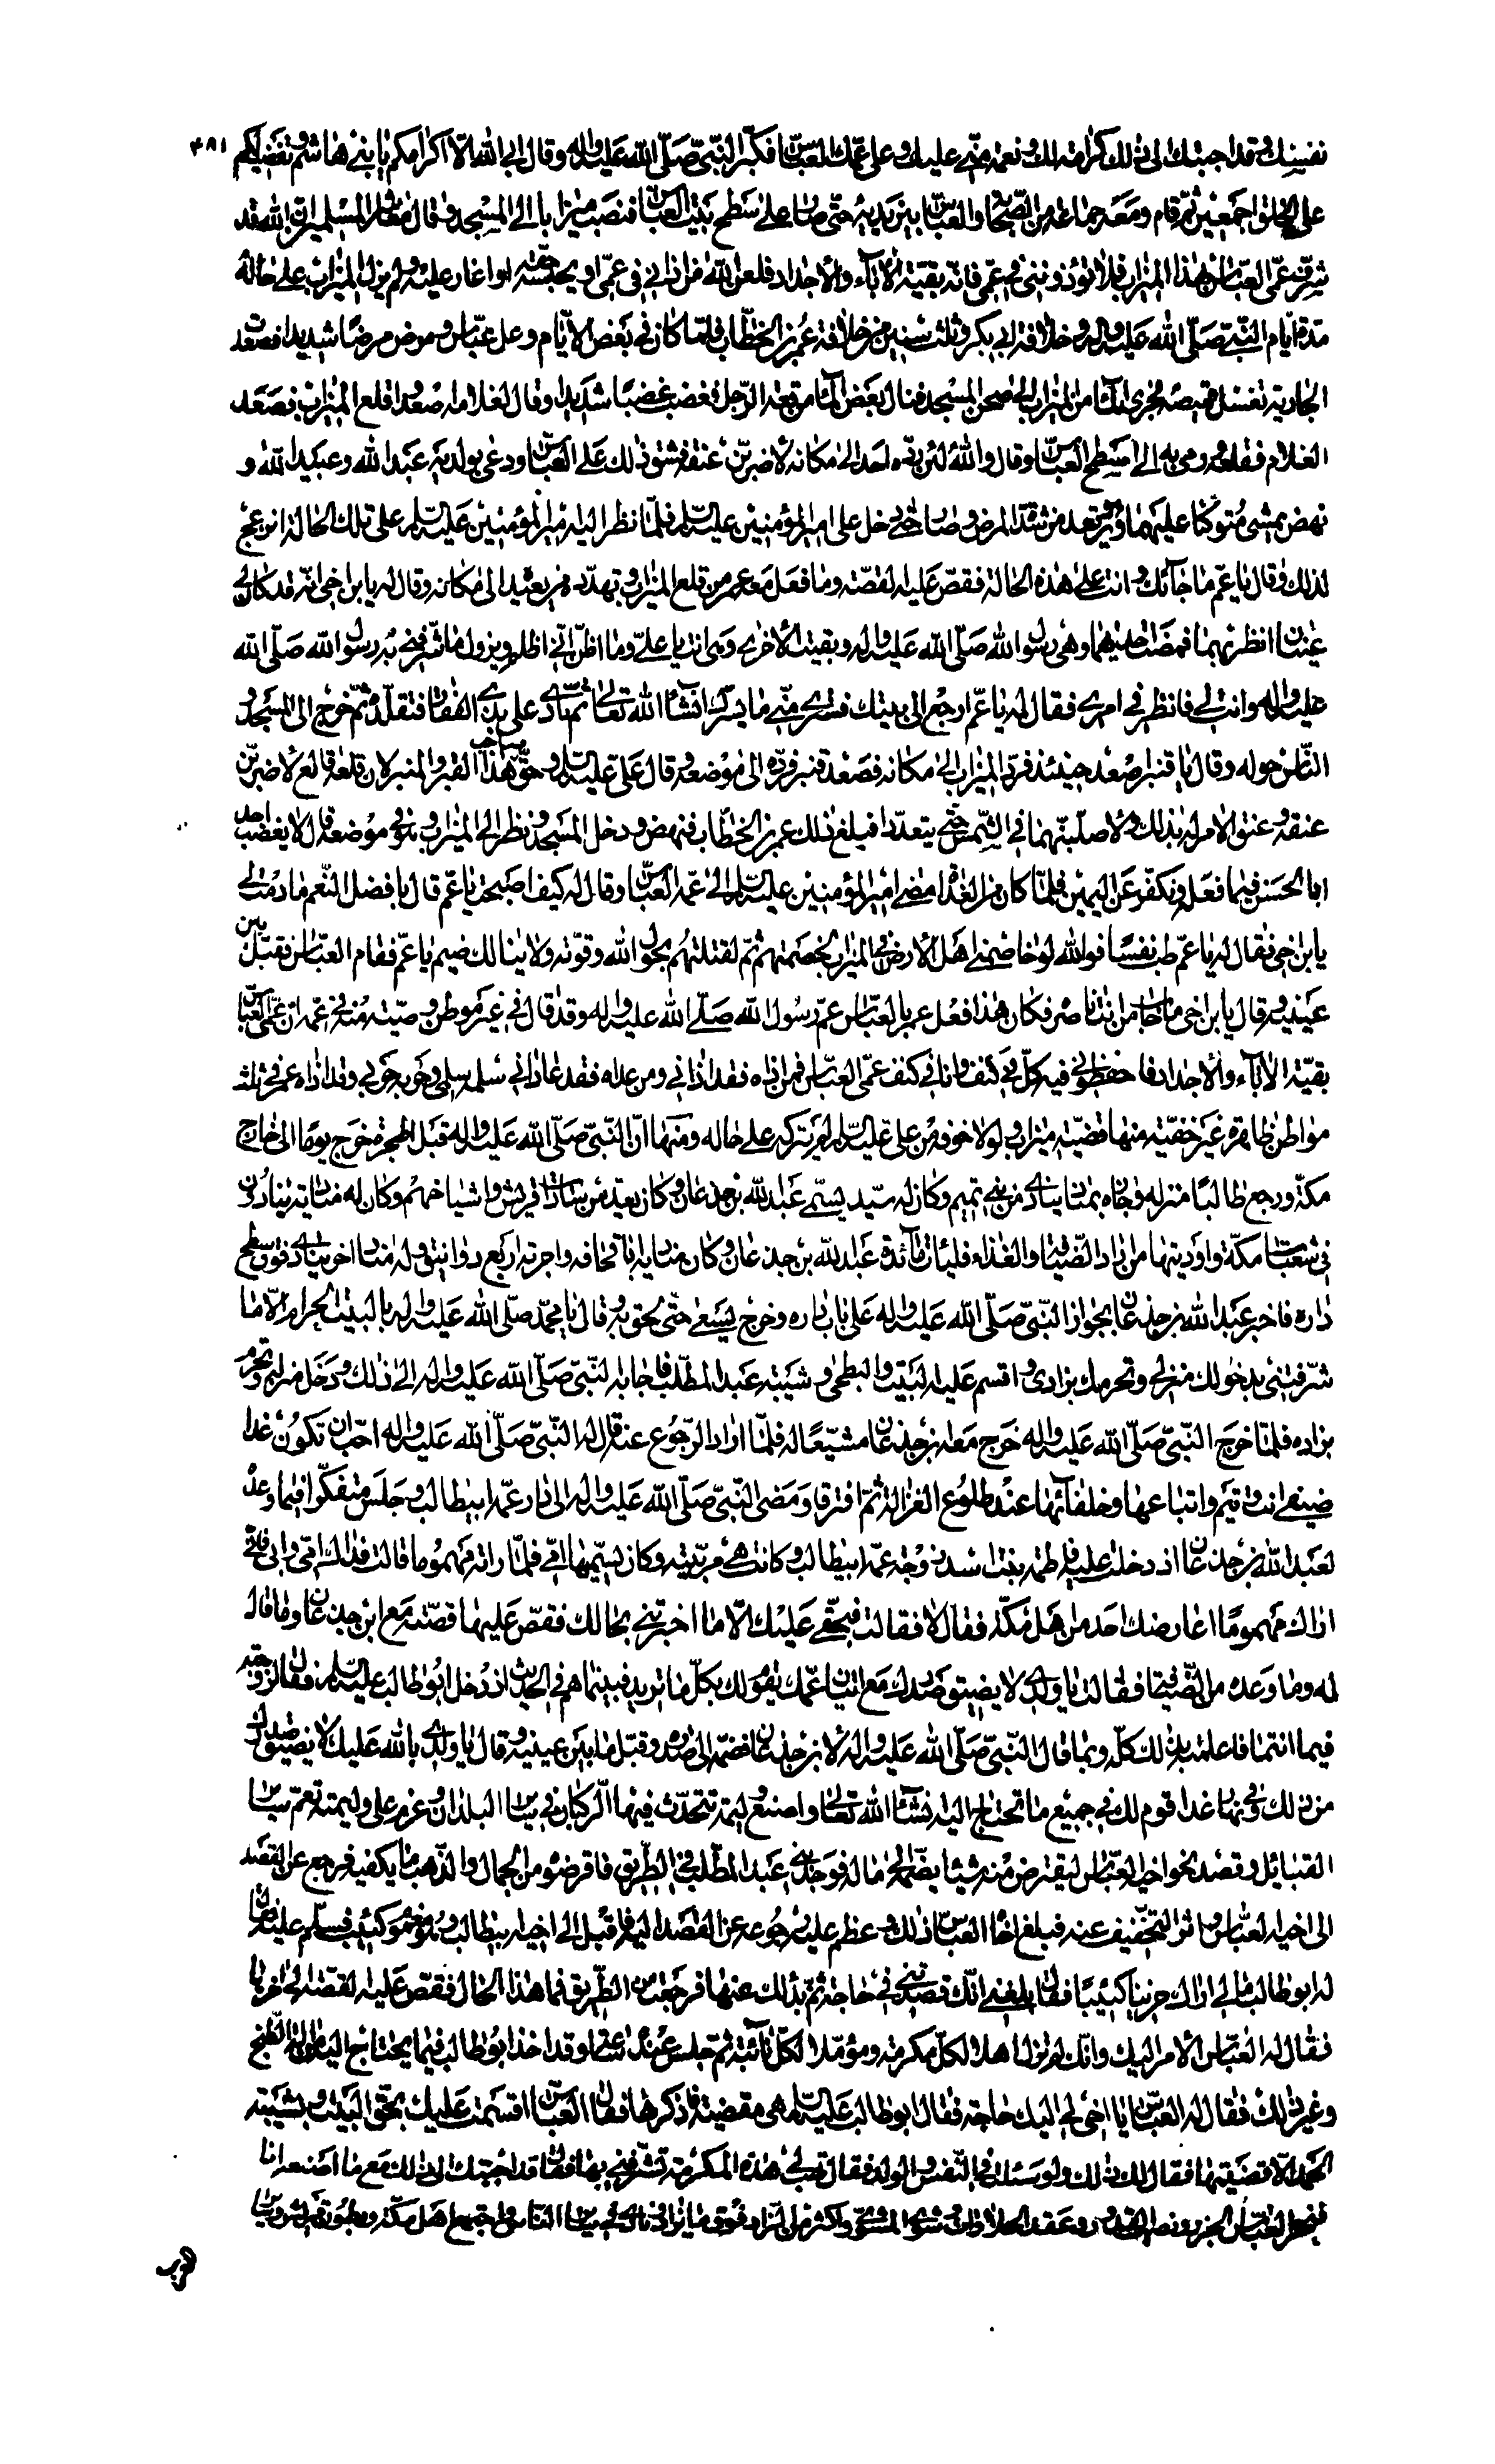 نفسك وقد اجبتك الى ذلك كرامة لك ونعمة منى عليك وعلى عمك العباس فكبر النبى صلى الله عليه واله وقال ابى الله الا اكرامكم يا بنى هاشم وتفضيلكم ٤٨١
على الخلق اجمعين ثم قام ومعه جماعة من الصحابة والعباس بين يديه حتى صار على سطح بيت العباس فنصب ميزابا الى المسجد وقال معاشر المسلمين ان الله قد
شرف عمى العباس بهذا الميزاب فلا تؤذوننى فى عمى فانه بقية الآباء والاجداد فلعن الله من اذانى فى عمى او بخسه حقه او اغار عليه ولم يزل الميزاب على حاله
مدة ايام النبى صلى الله عليه واله وخلافة ابى بكر وثلث سنين من خلافة عمر بن الخطاب فلما كان فى بعض الايام وعك عباس ومرض مرضا شديدا فصعدت
الجارية تغسل قميصه فجرى الماء من الميزاب الى صحن المسجد فنال بعض الماء مرقعة الرجل فغضب غضبا شديدا وقال لغلامه اصعد واقلع الميزاب فصعد
الغلام فقلعه ورمى به الى سطح العباس وقال والله لئن رده احد الى مكانه لاضربن عنقه فشق ذلك على العباس ودعى بولديه عبد الله وعبيد الله و
نهض يمشى متوكئا عليهما وهو يرتعد من شدة المرض وصار حتى دخل على امير المؤمنين عليه السلم فلما نظر اليه امير المؤمنين عليه السلم على تلك الحالة انزعج
لذلك وقال يا عم ما جاء بك وانت على هذه الحالة فقص عليه القصة وما فعل معه عمر من قلع الميزاب وتهدده من يعيده الى مكانه وقال له يا بن اخى انه قد كان لى
عينان انظر بهما فمضت احديهما وهى رسول الله صلى الله عليه واله وبقيت الاخرى وهى انت يا على وما اظن انى اظلم ويزول ما شرفنى به رسول الله صلى الله
عليه واله وانت لى فانظر فى امرى فقال له يا عم ارجع الى بيتك فسترى منى ما يسرك انشاء الله تعالى ثم نادى على بذى الفقار فتقلده ثم خرج الى المسجد و
الناس حوله وقال يا قنبر اصعد حينئذ فرد الميزاب الى مكانه فصعد قنبر فرده الى موضعه وقال على عليه السلم وحق صاحب هذا القبر والمنبر لان قلعه قالع لاضربن
عنقه وعنق الامر له بذلك ولاصلبنهما فى الشمس حتى يتقددا فبلغ ذلك عمر بن الخطاب فنهض ودخل المسجد ونظر الى الميزاب وهو فى موضعه فقال لا يغضب احد
ابا الحسن فيما فعله ونكفر عن اليمين فلما كان من الغداة مضى امير المؤمنين عليه السلم الى عمه العباس وقال له كيف اصبحت يا عم قال بافضل النعم ما دمت لى
يابن اخى فقال له يا عم طب نفسا فوالله لو خاصمنى اهل الارض فى الميزاب لخصمتهم ثم لقتلتهم بحول الله وقوته ولا ينالك ضيم يا عم فقام العباس فقبل بين
عينيه وقال يابن اخى ما خاب من انت ناصره فكان هذا فعل عمر بالعباس عم رسول الله صلى الله عليه واله وقد قال فى غير موطن وصية منه فى عمه ان عمى العباس
بقية الآباء والاجداد فاحفظونى فيه كل فى كنفى وانا فى كنف عمى العباس فمن اذاه فقد اذانى ومن عاداه فقد عادانى سلمه سلمى وحربه حربى وقد اذاه عمر فى ثلث
مواطن ظاهرة غير خفية منها قضية الميزاب ولولا خوفه من على عليه السلم لم يتركه على حاله ومنها ان النبى صلى الله عليه واله قبل الهجرة خرج يوما الى خارج
مكة ورجع طالبا منزله فاجتاز بمناد ينادى من بنى تميم وكان له سيد يسمى عبد الله بن جذعان وكان يعد من سادات قريش واشياخهم وكان له منادية ينادون
فى شعاب مكة واوديتها من اراد الضيافة والغذاء فليات مائدة عبد الله بن جذعان وكان مناديه ابا قحافة واجرته اربع دوانيق وله مناد اخر ينادى فوق سطح
داره فاخبر عبد الله بن جذعان بجواز النبى صلى الله عليه واله على باب داره وخرج يسعى حتى لحق به وقال يا محمد صلى الله عليه واله بالبيت الحرام الا ما
شرفتنى بدخولك منزلى وتحرمك بزادى واقسم عليه بالبيت والبطحى وشيبة عبد المطلب فاجابه النبى صلى الله عليه واله الى ذلك ودخل منزله وتحرم
بزاده فلما خرج النبى صلى الله عليه واله خرج معه ابن جذعان مشيعا له فلما اراد الرجوع عنه قال له النبى صلى الله عليه واله احب ان تكون غدا
ضيفى انت وتيم واتباعها وخلفائها عند طلوع الغزالة ثم افترقا ومضى النبى صلى الله عليه واله الى دار عمه ابيطالب وجلس متفكرا فيما وعده
لعبد الله بن جذعان اذ دخلت عليه فاطمة بنت اسد زوجة عمه ابيطالب وكانت هى مربيته وكان يسميها امى فلما راته مهموما قالت فداك امى وابى مالى
اراك مهموما اعارضك احد من اهل مكة فقال لا فقالت فبحقى عليك الا ما اخبرتنى بحالك فقص عليها قصته مع ابن جذعان وما قاله
له وما وعده من الضيافة فقالت يا ولدى لا يضيق صدرك مع ان عمك يقوم لك بكل ما تريد فبينما هم فى الحديث اذ دخل ابو طالب عليه السلم فقال لزوجته
فيما انتما فاعلمته بذلك كله وبما قال النبى صلى الله عليه واله لابن جذعان فضمه الى صدره وقبل ما بين عينيه وقال يا ولدى بالله عليك لا يضيق صدرك
من ذلك وفى نهار غدا اقوم لك فى جميع ما تحتاج اليه انشاء الله تعالى واصنع وليمة تتحدث فيها الركبان فى سائر البلدان وعزم على وليمة تعم سائر
القبائل وقصد نحو اخيه العباس ليقترض منه شيئا يضمه الى ماله فوجد بنى عبد المطلب فى الطريق فاقرضوه من الجمال والذهب ما يكفيه فرجع عن القصد
الى اخيه العباس واثر التخفيف عنه فبلغ اخاه العباس ذلك وعظم عليه رجوعه عن القصد اليه فاقبل الى اخيه ابيطالب وهو مغموم كئيب فسلم عليه فقال
له ابو طالب مالى اراك حزينا كئيبا فقال بلغنى انك قصدتنى فى حاجة ثم بدا لك عنها فرجعت من الطريق فما هذا الحال فقص عليه القصة الى اخرها
فقال له العباس الامر اليك وانك لم تزل اهلا لكل مكرمة ومؤملا لكل نائبة ثم جلس عنده ساعة وقد اخذ ابو طالب فيما يحتاج اليه من الة الطبخ
وغير ذلك فقال له العباس يا اخى لى اليك حاجة فقال ابو طالب عليه السلم هى مقضية فاذكرها فقال العباس اقسمت عليك بحق البيت وشيبة
الحمد الا قضيتها فقال لك ذلك ولو سئلت فى النفس والولد فقال تهب لى هذه المكرمة تشرفنى بها فقال قد اجبتك الى ذلك مع ما اصنعه انا
فنحر العباس الجزر ونصب القدور وعقد الحلاوات وشوى المشوى واكثر من الزاد فوق ما يراد ونادى فى سائر الناس فاجتمع اهل مكة وبطون قريش وسائر
العرب